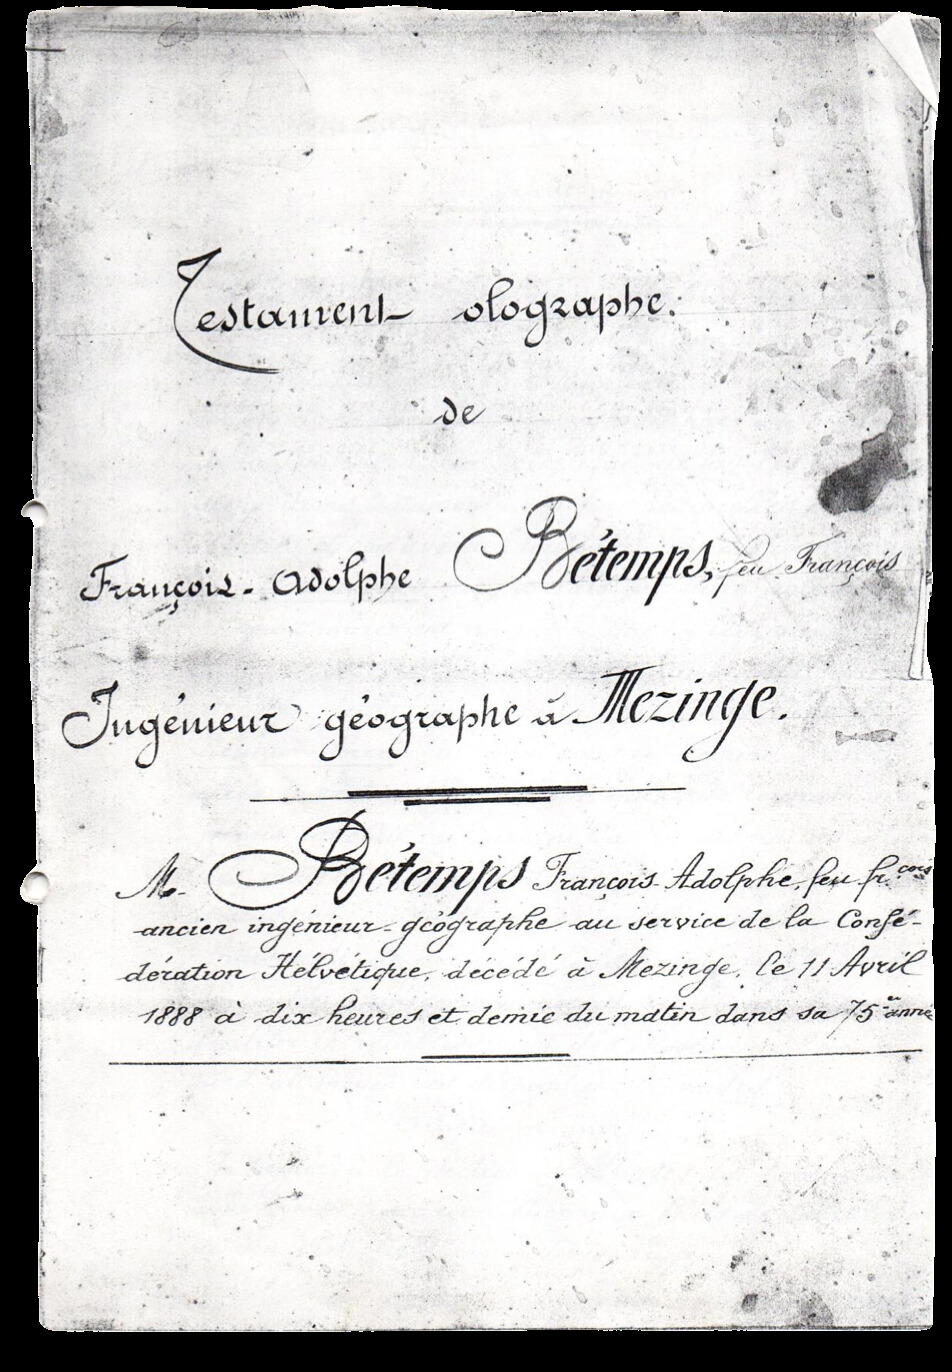 Testament olographe.
de
François-Adolphe Bétemps, feu François
Ingénieur géographe à Mezinge.
M. Bétemps François-Adolphe, feu fr.çois
ancien ingénieur-géographe au service de la Confé-
dération Hélvétique, décédé à Mezinge, le 11 Avril
1888 à dix heures et demie du matin dans sa 75e année